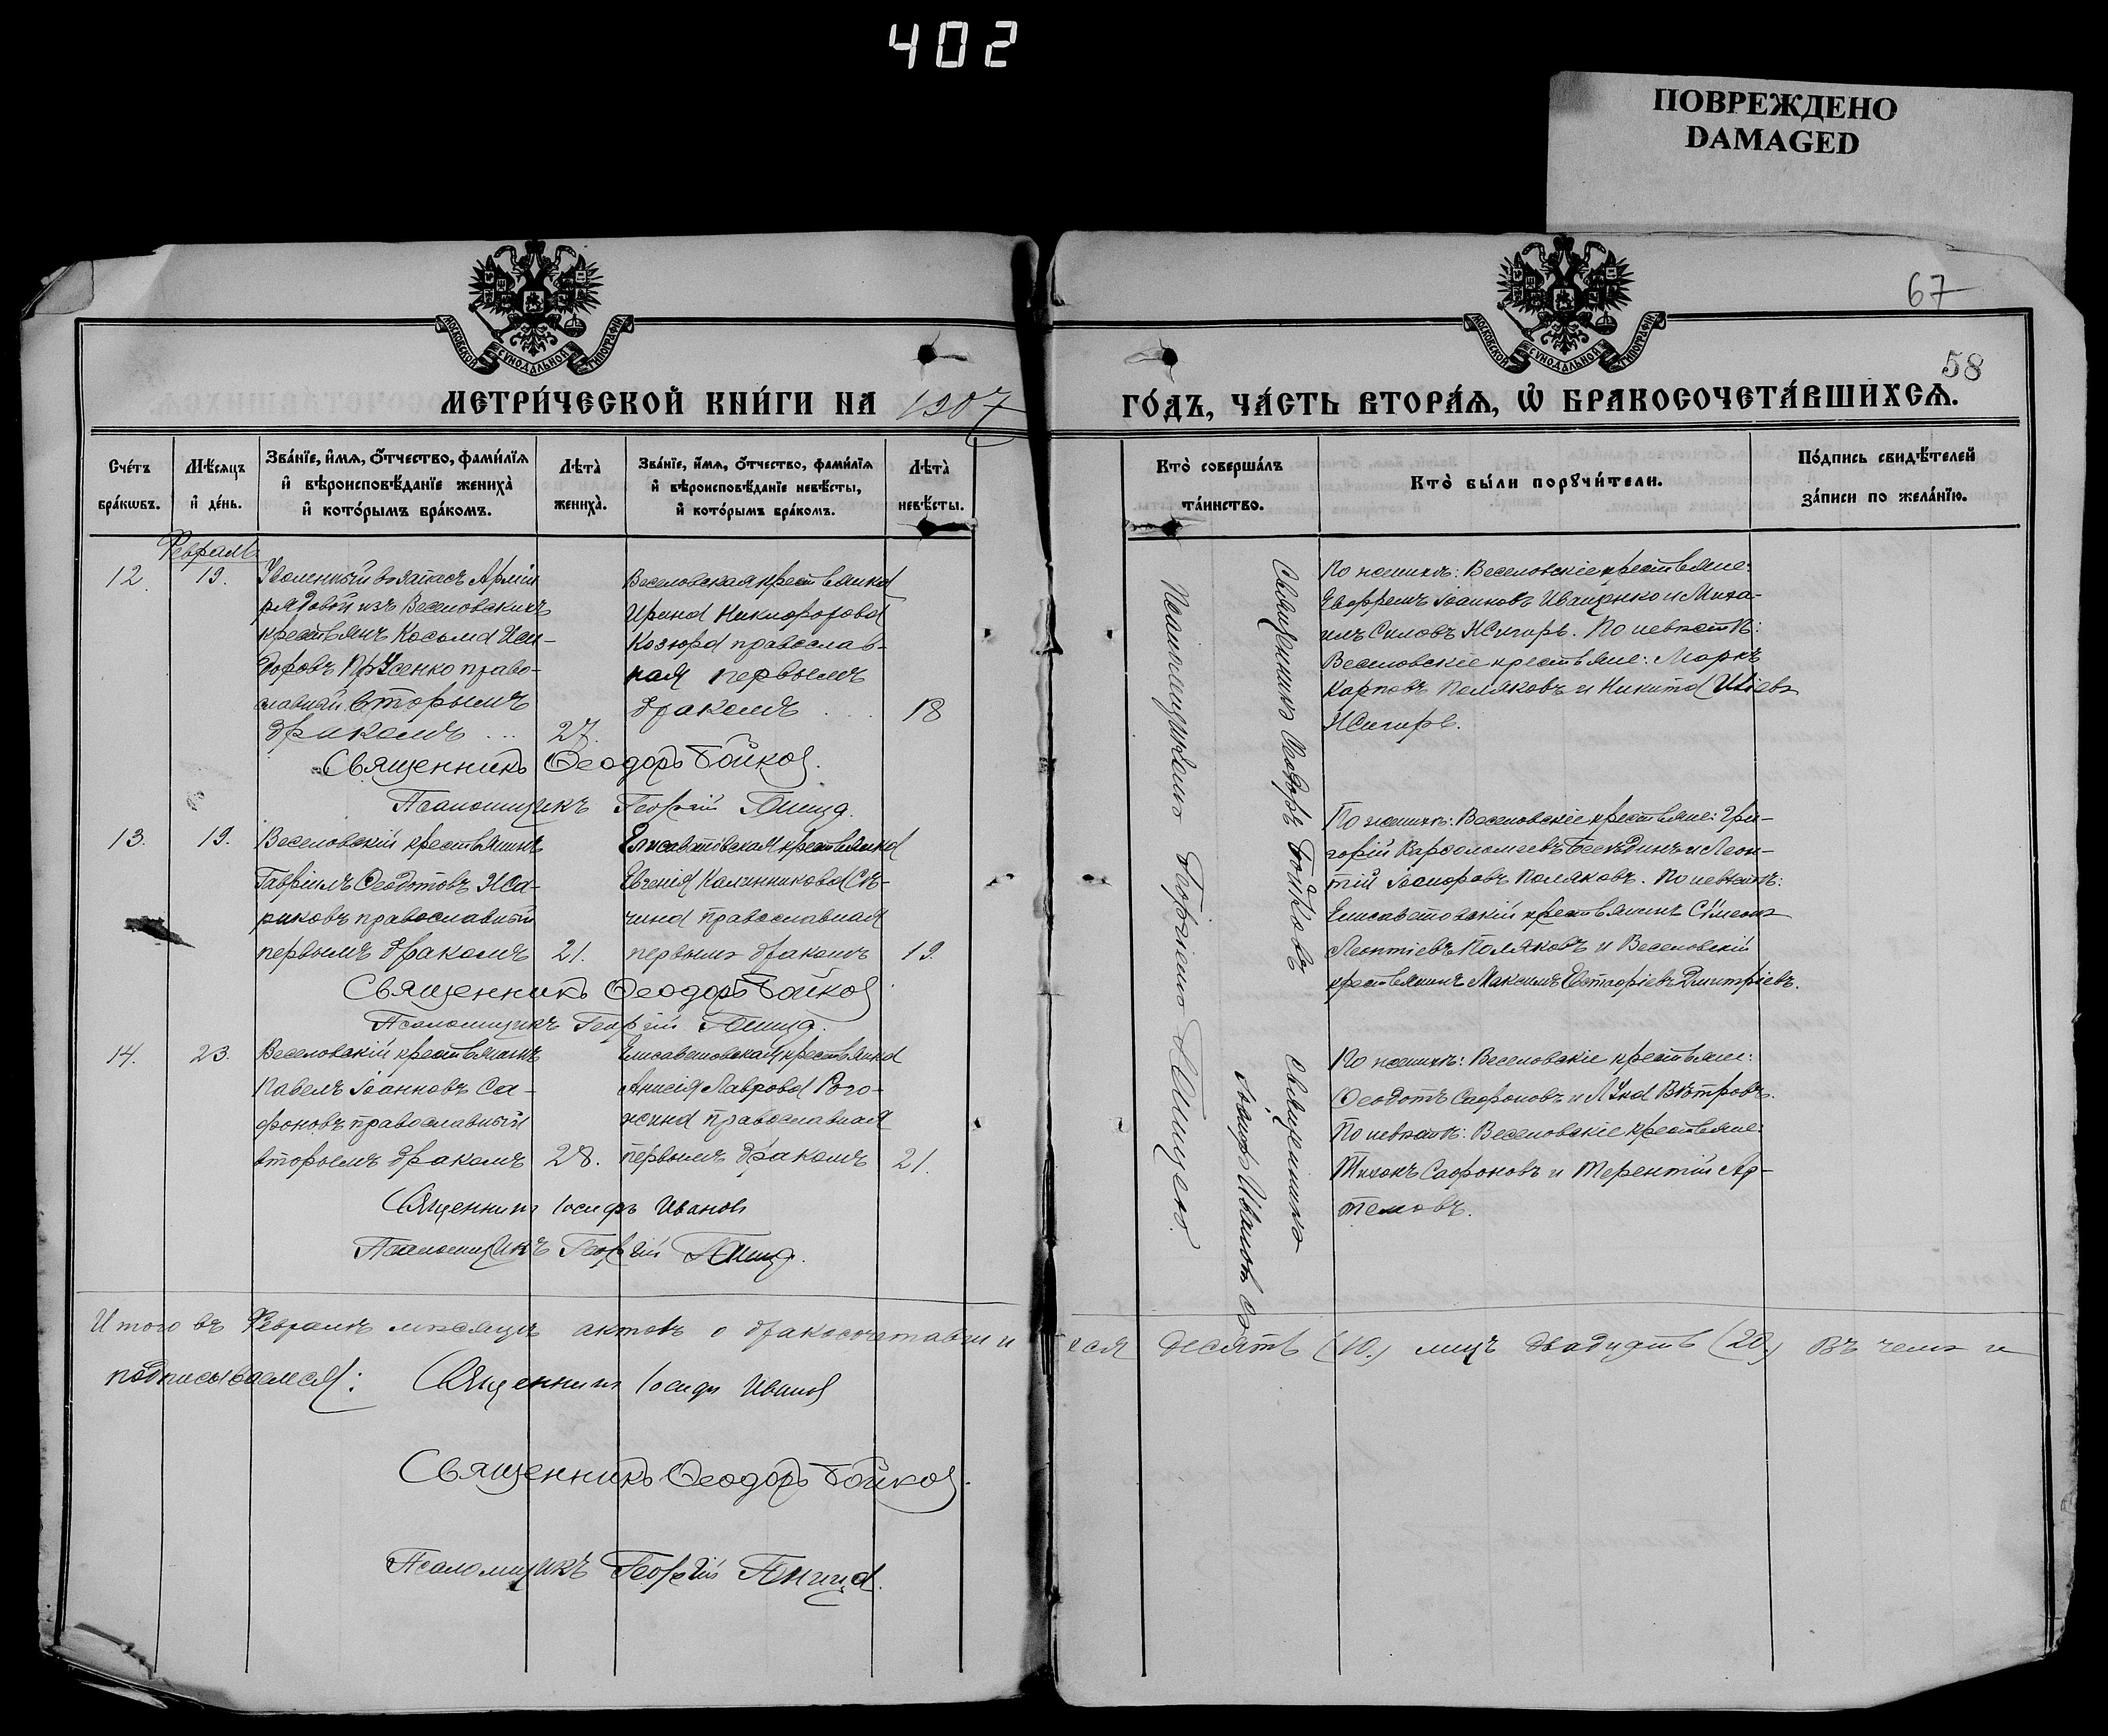 402
ПОВРЕЖДЕНО
DAMAGED
67
58
МОСКОВСКОЙ СѴНОДАЛЬНОЙ ТИПОГРАФІИ
МОСКОВСКОЙ СѴНОДАЛЬНОЙ ТИПОГРАФІИ
МЕТРИ́ЧЕСКОЙ КНИ́ГИ НА 1907
ГО́ДЪ, ЧА́СТЬ ВТОРА́Ѧ, Ѡ҆ БРАКОСОЧЕТА́ВШИХСѦ.
Сче́тъ бра́кѡвъ.
Мѣ́сѧцъ и҆ де́нь.
Зва́нїе, и҆́мѧ, ѻ҆́тчество, фами́лїѧ и҆ вѣроисповѣ́данїе жениха̀ и҆ кото́рымъ бра́комъ.
Лѣ́та̀ жениха̀.
Зва́нїе, и҆́мѧ, ѻ҆́тчество, фами́лїѧ и҆ вѣроисповѣ́данїе невѣ́сты, и҆ кото́рымъ бра́комъ.
Лѣ́та̀ невѣ́сты.
Кто̀ соверша́лъ та́инство.
Кто̀ бы́ли порꙋчи́тели.
По́дпись свидѣ́телей за́писи по жела́нїю.
Февраль
12.
19.
Уволенный въ запасъ Арміи
рядовой изъ Веселовскихъ
крестьянъ Косьма Иси-
доровъ Прусенко право-
славный вторымъ
бракомъ ...
27.
Веселовская крестьянка
Ирина Никифорова
Козюра православ-
ная первымъ
бракомъ . . .
18
По женихѣ: Веселовскіе крестьяне:
Евфремъ Іоанновъ Иващенко и Миха-
илъ Силовъ . По невѣстѣ:
Веселовскіе крестьяне: Маркъ
Карповъ Поляковъ и Никита
Священникъ Ѳеодоръ Бойков
Псаломщикъ Георгій Тмица.
13.
19.
Веселовскій крестьянинъ
Гавріилъ Ѳеодотовъ
православный
первымъ бракомъ
21.
Елисаветовская крестьянка
Евгенія Калинникова Сѣ-
чина православная
первымъ бракомъ
19.
По женихѣ: Веселовскіе крестьяне: Гри-
горій Варѳоломеевъ и Леон-
тій Поляковъ. По невѣстѣ:
Елисаветовскій крестьянинъ Симеонъ
Леонтіевъ Поляковъ и Веселовскій
крестьянинъ Максимъ Евстафіевъ Дмитріевъ.
Священникъ Ѳеодоръ Бойков
Псаломщикъ Георгій Тмица.
14.
23.
Веселовскій крестьянинъ
Павелъ Іоанновъ Са-
фоновъ православный
вторымъ бракомъ
28.
Елисаветовская крестьянка
Анисія Лаврова Рого-
жина православная
первымъ бракомъ
21.
По женихѣ: Веселовскіе крестьяне:
Ѳеодотъ Сафоновъ и Лука Вѣтровъ.
По невѣстѣ: Веселовскіе крестьяне:
Тихонъ Сафоновъ и Терентій Ар-
темовъ.
Священникъ Іосифъ Иванов
Псаломщикъ Георгій Тмица.
Священникъ Ѳеодоръ Бойковъ
Священникъ
Іосифъ Ивановъ съ
Псаломщикомъ Георгіемъ Тмицею.
Итого въ Февралѣ мѣсяцѣ актовъ о бракосочетавши
хся десять (10.) лицъ двадцать (20.) Въ чемъ и
подписываемся:
Священникъ Іосифъ Иванов
Священникъ Ѳеодоръ Бойков.
Псаломщикъ Георгій Тмица.